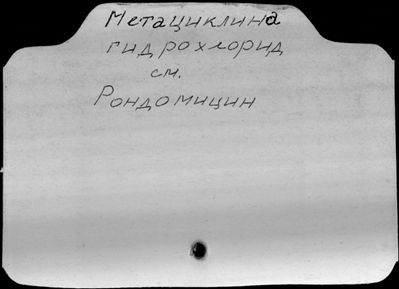 Метациклина
гидрохлорид
см.
Рондомицин